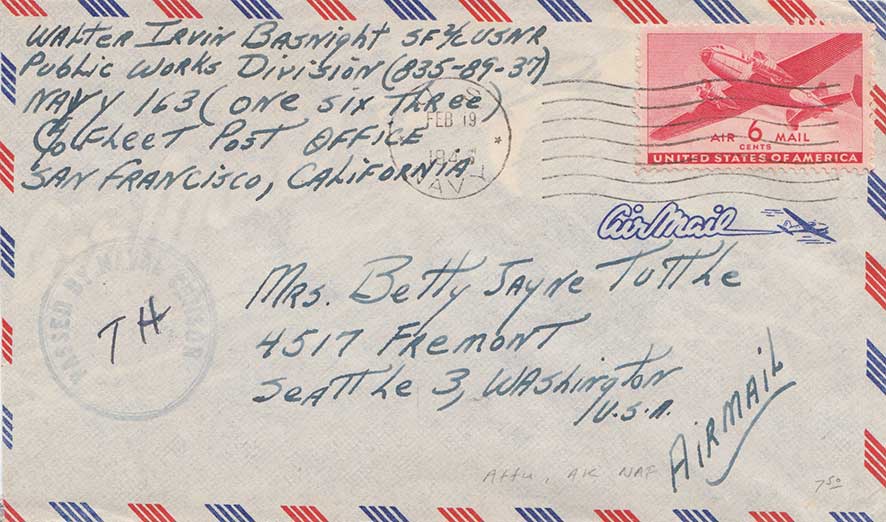 Walter Irvin Basnight SF2/c USNR
Public Works Division (835-89-37)
NAVY 163 (one six three)
c/o Fleet Post Office
San Francisco, California
FEB 19
NAVY
AIR 6 MAIL
CENTS
UNITED STATES OF AMERICA
Air Mail
PASSED BY NAVAL CENSOR
TH
Mrs. Betty Jayne Tuttle
4517 Fremont
Seattle 3, Washington
U.S.A.
AIRMAIL
Attu, AK NAF
7.50